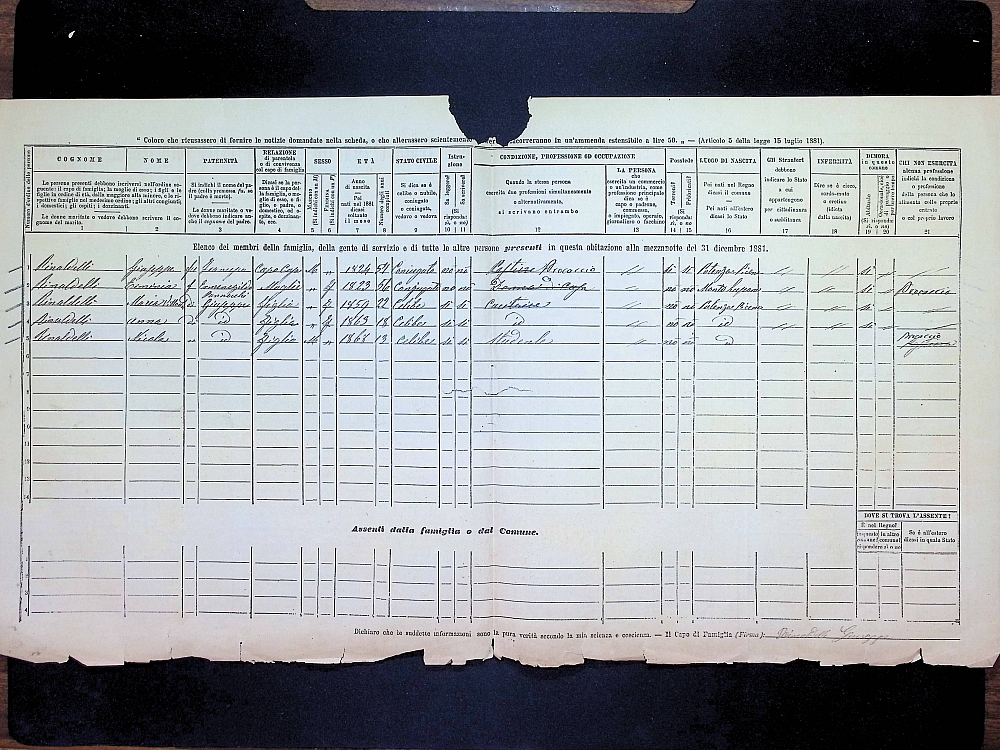 " Coloro che ricusassero di fornire le notizie domandate nella scheda, o che alterassero scientemente incorreranno in un'ammenda estensibile a lire 50. „ — (Articolo 5 della legge 15 luglio 1881).
COGNOME NOME PATERNITÀ RELAZIONE di parentela o di convivenza col capo di famiglia SESSO ETÀ STATO CIVILE Istruzione CONDIZIONE, PROFESSIONE OD OCCUPAZIONE Possiede LUOGO DI NASCITA Gli Stranieri debbono indicare lo Stato a cui appartengono per cittadinanza o sudditanza INFERMITÀ DIMORA in questo comune CHI NON ESERCITA alcuna professione indichi la condizione o professione della persona che lo alimenta colle proprie entrate o col proprio lavoro
Le persone presenti debbono iscriversi nell'ordine seguente: il capo di famiglia; la moglie di esso; i figli e le figlie in ordine di età, dalla maggiore alla minore, e le rispettive famiglie nel medesimo ordine; gli altri congiunti; i domestici; gli ospiti; i dozzinanti.
Le donne maritate o vedove debbono scrivere il cognome del marito.
Si indichi il nome del padre
Le donne maritate o vedove debbono indicare anche il cognome del padre.
Maschi Femmine Anno di nascita Pei nati nel 1881 dicasi soltanto il mese Numero degli anni compiuti
Si dica se è celibe o nubile, coniugato o coniugata, vedovo o vedova
Sa leggere? Sa scrivere? (Si risponda: sì, o no)
Quando la stessa persona esercita due professioni simultaneamente o alternativamente, si scrivano entrambe
LA PERSONA che esercita un commercio o un'industria, come professione principale dica se è capo o padrona, commesso, o impiegato, operaio, giornaliero o facchino
Terreni? Fabbricati? (Si risponda: sì, o no)
Pei nati nel Regno dicasi il comune
Pei nati all'estero dicasi lo Stato
Dire se è cieco, sordo-muto o cretino (idiota dalla nascita)
2 3 4 5 6 7 8 9 10 11 12 13 14 15 16 17 18 19 20 21
Elenco dei membri della famiglia, della gente di servizio e di tutte le altre persone presenti in questa abitazione alla mezzanotte del 31 dicembre 1881.
Rinaldelli Giuseppe Capo Casa M „ 1824 57 Coniugato no no Procaccio sì sì Potenza Picena
Rinaldelli f Moglie „ F 1823 Coniugata no no no no Procaccio
Rinaldelli Maria Giuseppe Figlia „ F 1859 22 Celibe sì sì no no Potenza Picena
Rinaldelli Anna id Figlia „ F 1863 18 Celibe sì sì id no no id
Rinaldelli Nicola „ id Figlio M „ 1868 13 Celibe sì sì Studente no no id
Assenti dalla famiglia o dal Comune.
DOVE SI TROVA L'ASSENTE?
È nel Regno? Se è all'estero dicasi in quale Stato
Dichiaro che le suddette informazioni sono la pura verità secondo la mia scienza e coscienza. — Il Capo di Famiglia (Firma): Rinaldelli Giuseppe